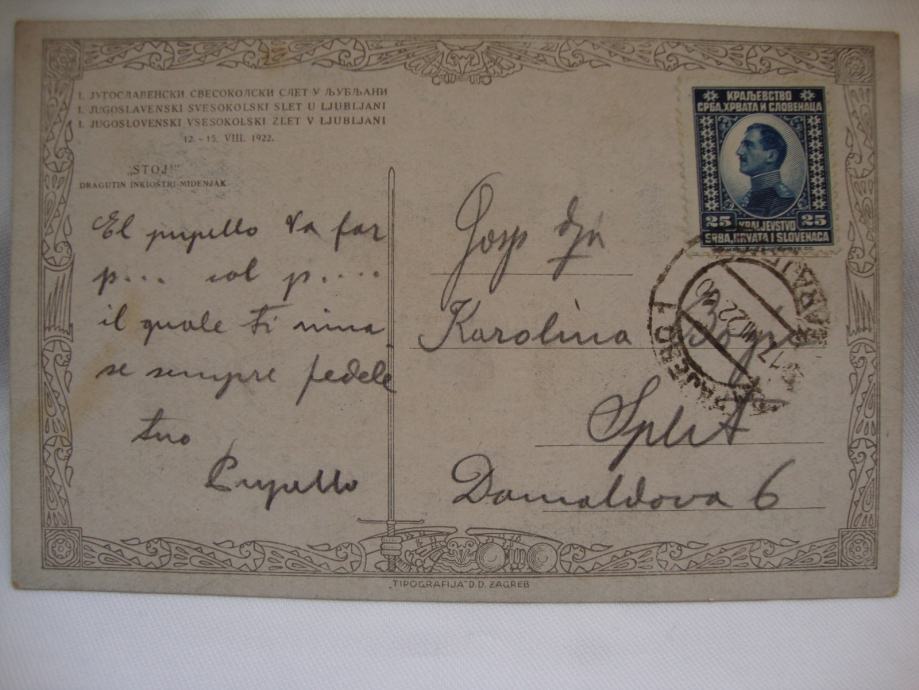 I. ЈУГОСЛАВЕНСКИ СВЕСОКОЛСКИ СЛЕТ У ЉУБЉАНИ
I. JUGOSLAVENSKI SVESOKOLSKI SLET U LJUBLJANI
I. JUGOSLOVENSKI VSESOKOLSKI ZLET V LJUBLJANI
12. - 15. VIII. 1922.
„STOJ!"
DRAGUTIN INKIOSTRI-MIDENJAK
El pupillo va far
p... col p....
il quale ti
se sempre fedele
tuo
Pupillo
КРАЉЕВСТВО
СРБА, ХРВАТА И СЛОВЕНАЦА
25 25
KRALJEVSTVO
SRBA, HRVATA I SLOVENACA
22
Gosp dja
Karolina
Split
Domaldova 6
„TIPOGRAFIJA" D.D. ZAGREB